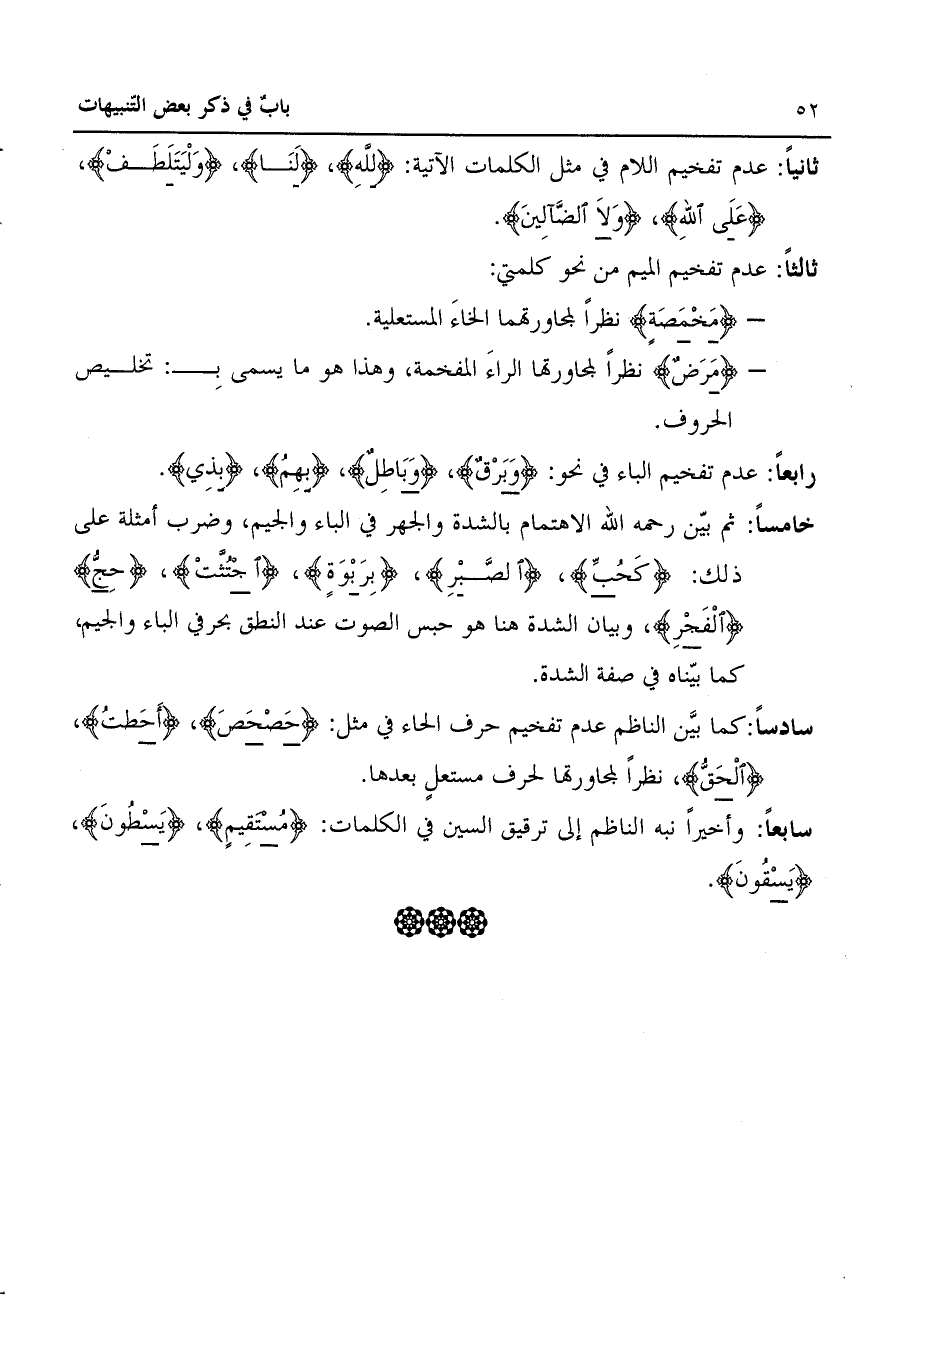 ٥٢ بابٌ في ذكر بعض التّنبيهات
ثانياً: عدم تفخيم اللام في مثل الكلمات الآتية: ﴿لِلَّهِ﴾، ﴿لَنَــا﴾، ﴿وَلْيَتَلَطَــفْ﴾،
﴿عَلَى ٱللهِ﴾، ﴿وَلاَ ٱلضَّآلِينَ﴾.
ثالثاً: عدم تفخيم الميم من نحو كلمتي:
– ﴿مَخْمَصَةٍ﴾ نظراً لمجاورتهما الخاءَ المستعلية.
– ﴿مَرَضٌ﴾ نظراً لمجاورتها الراءَ المفخمة، وهذا هو ما يسمى بِــــ: تخلــيص
الحروف.
رابعاً: عدم تفخيم الباء في نحو: ﴿وَبَرْقٌ﴾، ﴿وَبَاطِلٌ﴾، ﴿بِهِمُ﴾، ﴿بِذِي﴾.
خامساً: ثم بيّن رحمه الله الاهتمام بالشدة والجهر في الباء والجيم، وضرب أمثلة على
ذلك: ﴿كَحُبِّ﴾، ﴿ٱلصَّــبْرِ﴾، ﴿بِرَبْوَةٍ﴾، ﴿ٱجْتُثَّتْ﴾، ﴿حِجُّ﴾
﴿ٱلْفَجْرِ﴾، وبيان الشدة هنا هو حبس الصوت عند النطق بحرفي الباء والجيم،
كما بيّناه في صفة الشدة.
سادساً: كما بيَّن الناظم عدم تفخيم حرف الحاء في مثل: ﴿حَصْحَصَ﴾، ﴿أَحَطتُ﴾،
﴿ٱلْحَقُّ﴾، نظراً لمجاورتها لحرف مستعلٍ بعدها.
سابعاً: وأخيراً نبه الناظم إلى ترقيق السين في الكلمات: ﴿مُسْتَقِيمٍ﴾، ﴿يَسْطُونَ﴾،
﴿يَسْقُونَ﴾.